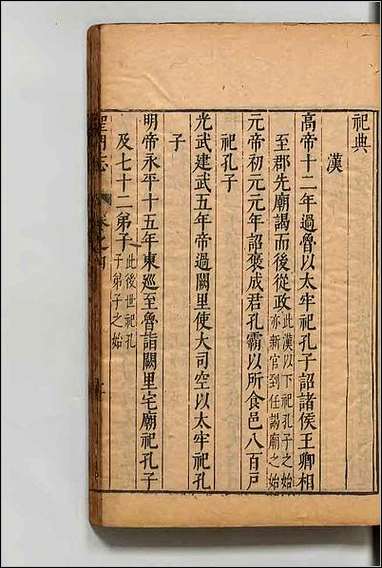 祀典
漢
高帝十二年過魯以太牢祀孔子詔諸侯王卿相
至郡先廟謁而後從政此漢以下祀孔子之始
亦新官到任謁廟之始
元帝初元元年詔褒成君孔霸以所食邑八百戸
祀孔子
光武建武五年帝過闕里使大司空以太牢祀孔
子
明帝永平十五年東巡至魯詣闕里宅廟祀孔子
及七十二弟子此後世祀孔
子弟子之始
聖門志 卷之四